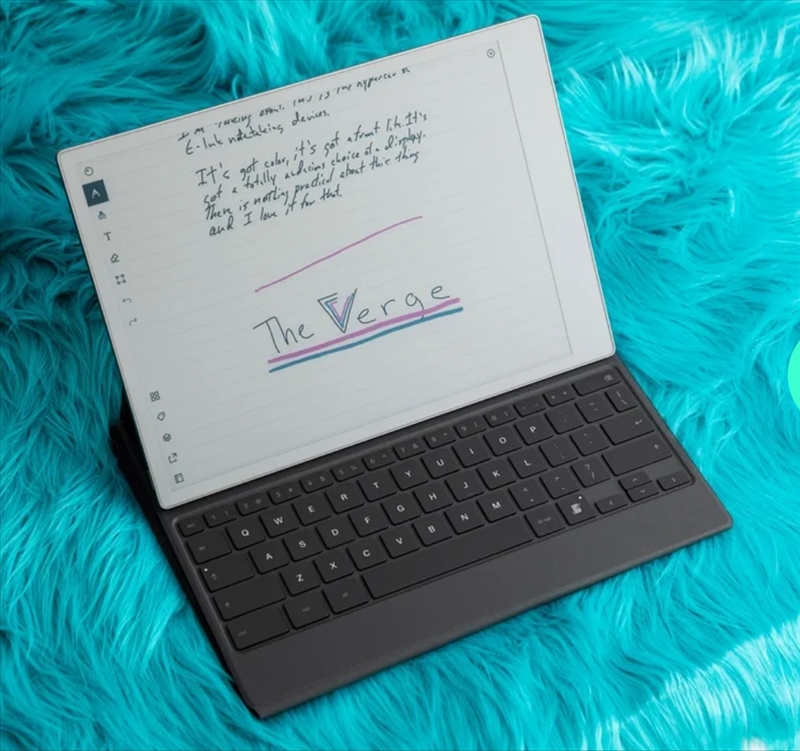 I'm talking about. This is the hypercar of
E-Ink notetaking devices.
It's got color, it's got a front lite. It's
got a totally audacious choice of a display.
There is nothing practical about this thing
and I love it for that.
The Verge
T
Q W E R T Y U I O P
A S D F G H J K L
Z X C V B N M